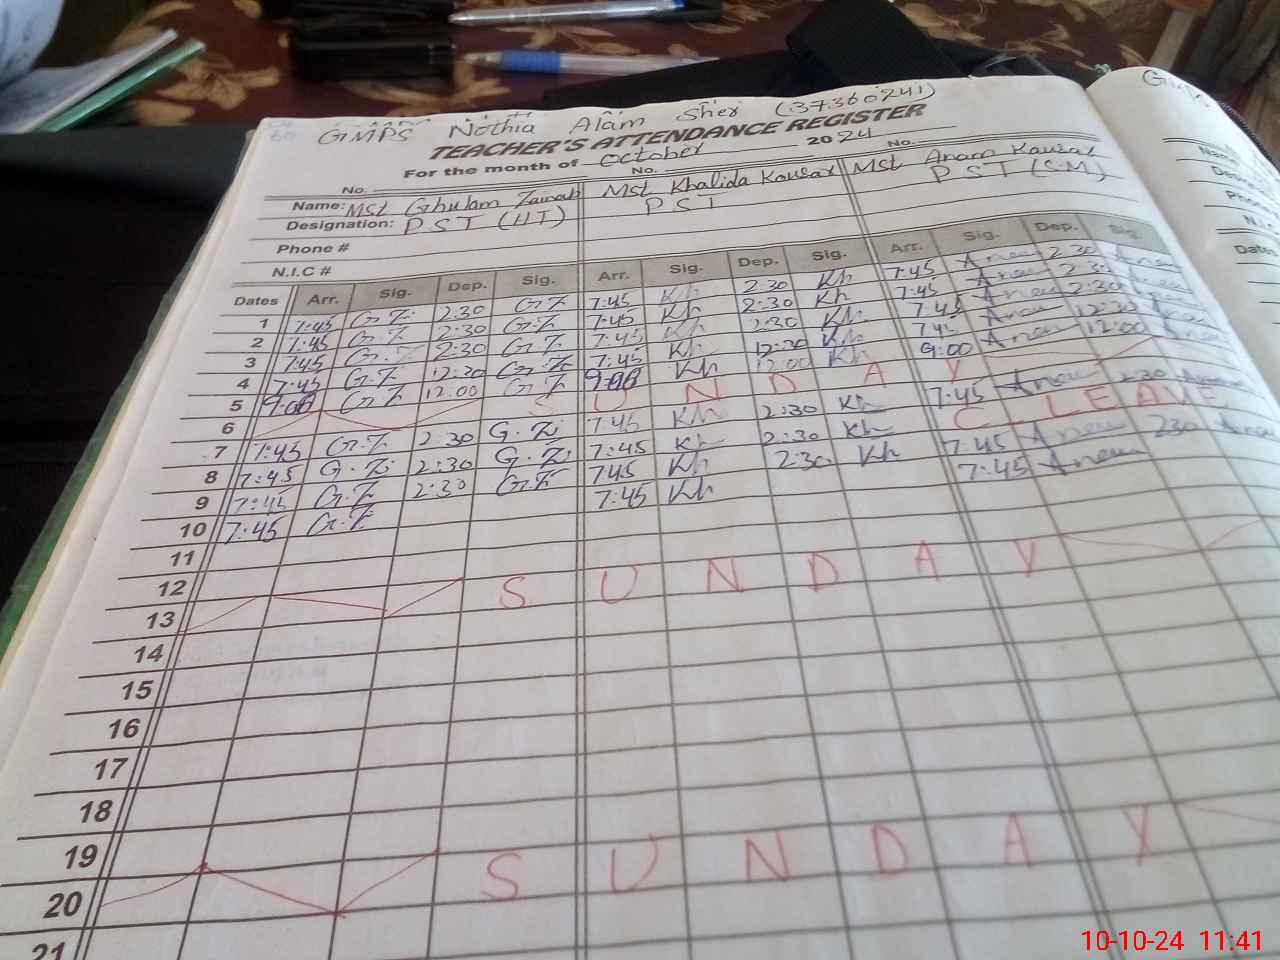 GMPS Nothia Alam Sher (37360241)
TEACHER'S ATTENDANCE REGISTER
For the month of October 2024
No. No. No.
Name: Mst Ghulam Zainab Mst Khalida Kousar Mst Anam Kausar
Designation: PST (HT) PST PST (S.M)
Phone #
N.I.C #
Dates Arr. Sig. Dep. Sig. Arr. Sig. Dep. Sig. Arr. Sig. Dep. Sig.
1 7:45 G.Z 2:30 G.Z 7:45 Kh 2:30 Kh 7:45 2:30
2 7:45 G.Z 2:30 G.Z 7:45 Kh 2:30 Kh 7:45 2:30
3 7:45 G.Z 2:30 G.Z 7:45 Kh 2:30 Kh 7:45 2:30
4 7:45 G.Z 12:30 G.Z 7:45 Kh 12:30 Kh 7:45 12:30
5 9:00 G.Z 12:00 G.Z 9:00 Kh 12:00 Kh 9:00 12:00
6 S U N D A Y
7 7:45 G.Z 2:30 G.Z 7:45 Kh 2:30 Kh 7:45 2:30
8 7:45 G.Z 2:30 G.Z 7:45 Kh 2:30 Kh C LEAVE
9 7:45 G.Z 2:30 G.Z 7:45 Kh 2:30 Kh 7:45 2:30
10 7:45 G.Z 7:45 Kh 7:45
11
12
13 S U N D A Y
14
15
16
17
18
19
20 S U N D A Y
21
10-10-24 11:41